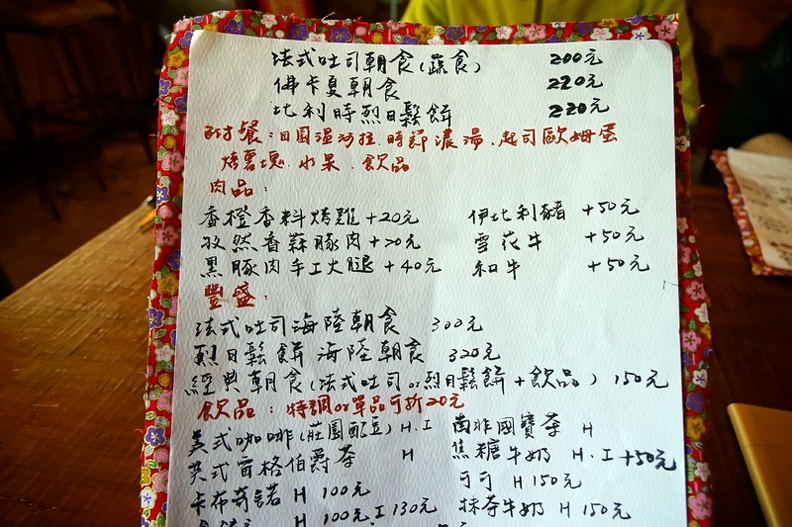 法式吐司朝食(蔬食) 200元
佛卡夏朝食 220元
比利時烈日鬆餅 220元
附餐:田園溫沙拉.時節濃湯.起司歐姆蛋
烤薯塊.水果.飲品
肉品:
香橙香料烤雞+20元 伊比利豬+50元
孜然香蒜豚肉+20元 雪花牛+50元
黑豚肉手工火腿+40元 和牛+50元
豐盛:
法式吐司海陸朝食 300元
烈日鬆餅海陸朝食 320元
經典朝食(法式吐司or烈日鬆餅+飲品) 150元
飲品:特調or單品可折20元
美式咖啡(莊園配豆)H.I 南非國寶茶 H
英式雷格伯爵茶 H 焦糖牛奶 H.I +50元
可可 H 150元
卡布奇諾 H 100元 抹茶牛奶 H 150元
H 100元 I 130元